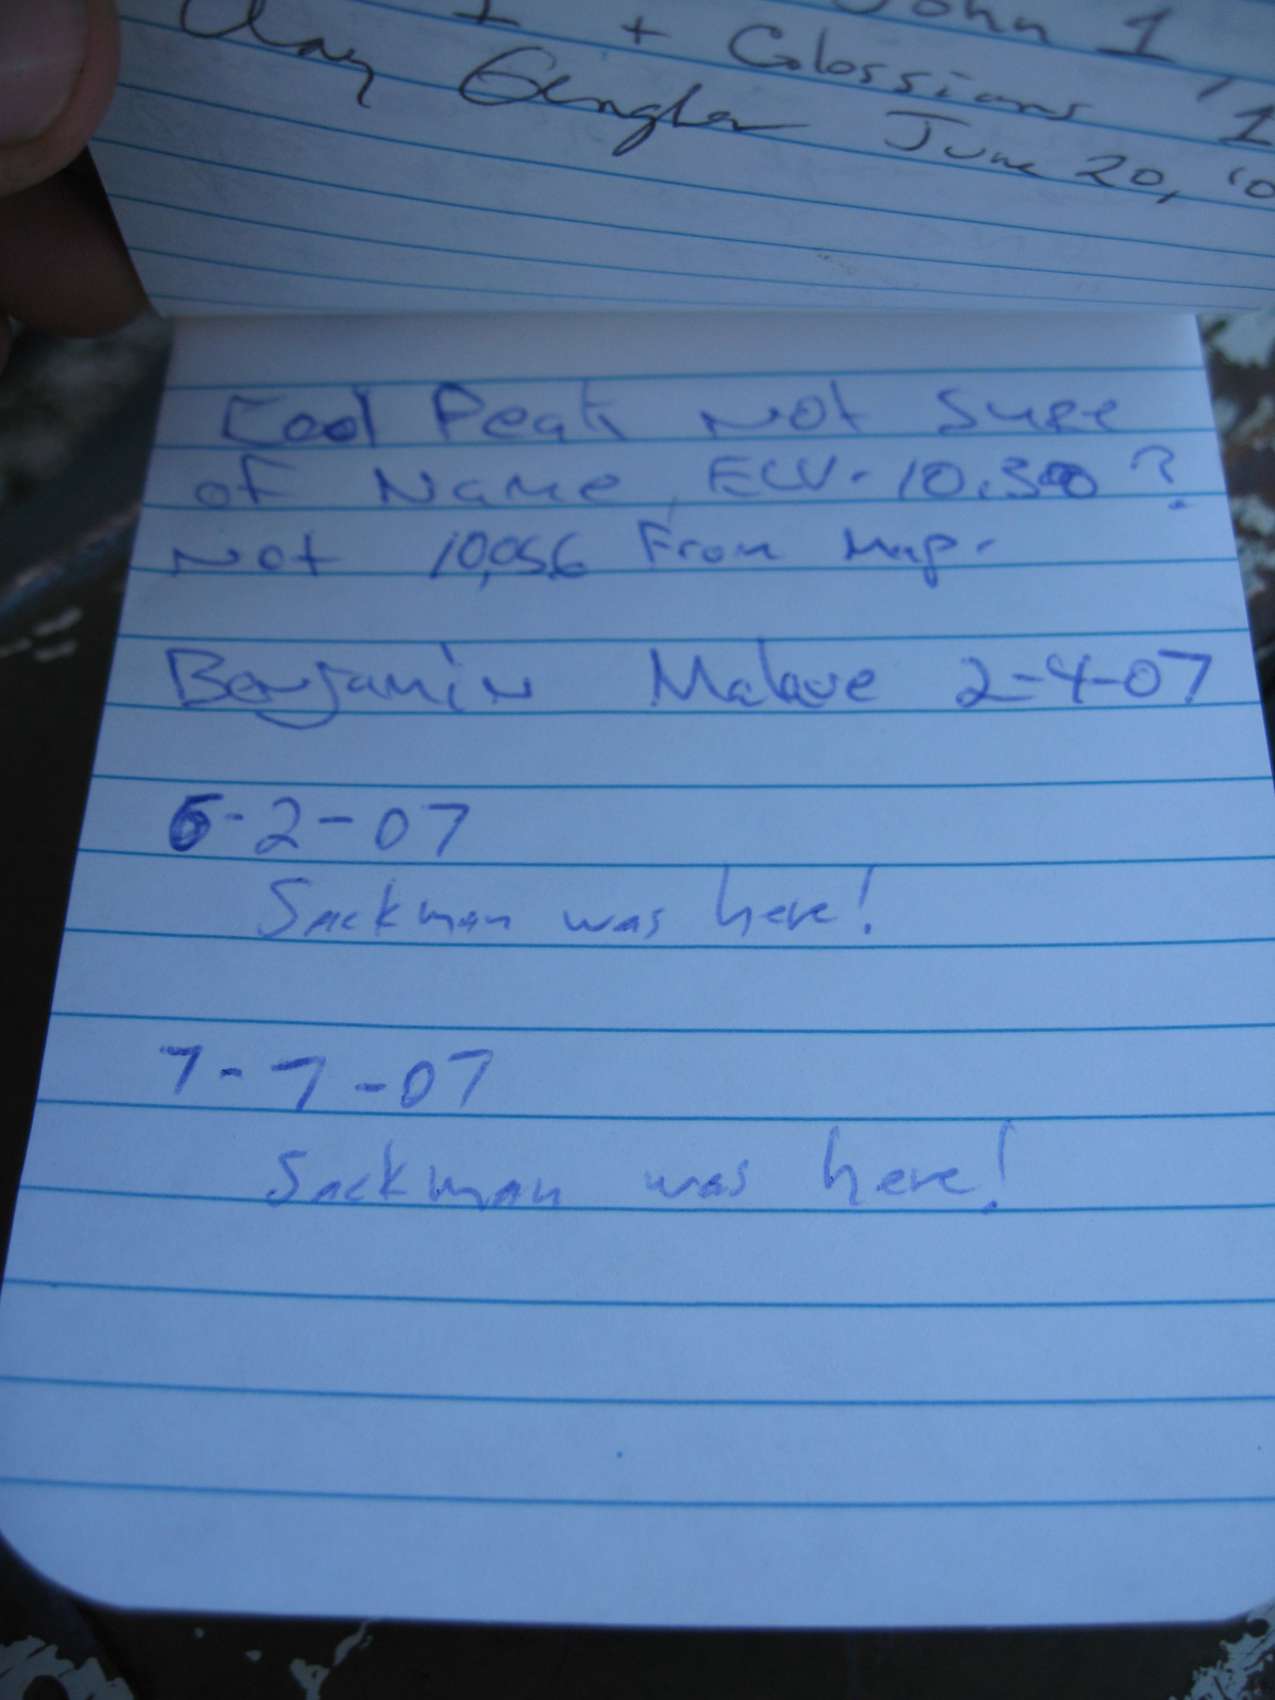 John 1,
+ Colossians 1
Clay June 20, '0
Cool Peak Not Sure
of Name, ELV. 10,300?
Not 10,056 From Map.
Benjamin Malave 2-4-07
6-2-07
Sackman was here!
7-7-07
Sackman was here!